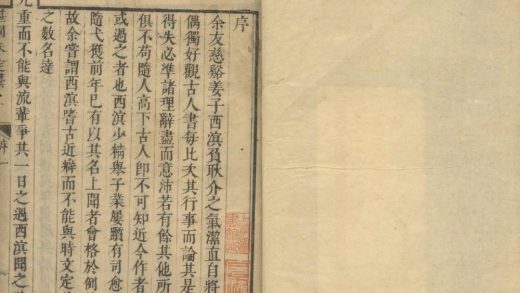 序
余友慈谿姜子西溟負耿介之氣潔直自將
偶獨好觀古人書每比次其行事而論其是
得失必準諸理辭盡而意沛若有餘其他所
俱不苟隨人高下古人卽不可知近今作者
或過之者也西溟少精舉子業屢躓有司愈
隨弋獲前年已有以其名上聞者會格於例
故余嘗謂西溟嗜古近癖而不能與時文定
之數名達
九重而不能與流輩爭其一日之遇西溟聞之